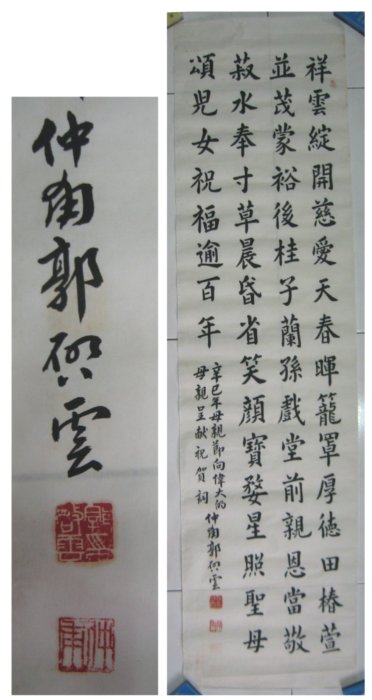 祥雲綻開慈愛天春暉籠罩厚德田椿萱
並茂蒙裕後桂子蘭孫戲堂前親恩當敬
菽水奉寸草晨昏省笑顏寶婺星照聖母
頌兒女祝福逾百年
辛巳年母親節向偉大的
母親呈献祝賀詞
仲甫郭啓雲
仲甫郭啓雲
仲甫